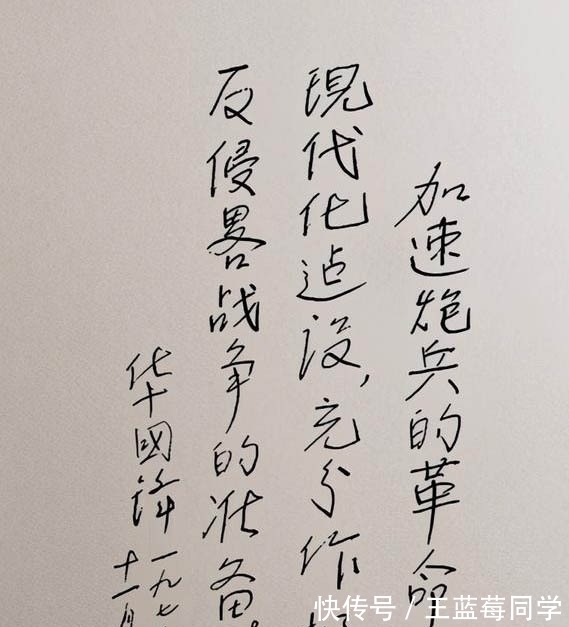 加速炮兵的革命
現代化建设，充分作好
反侵畧战争的准备。
华國锋
一九七
十一月
快传号／王蓝莓同学